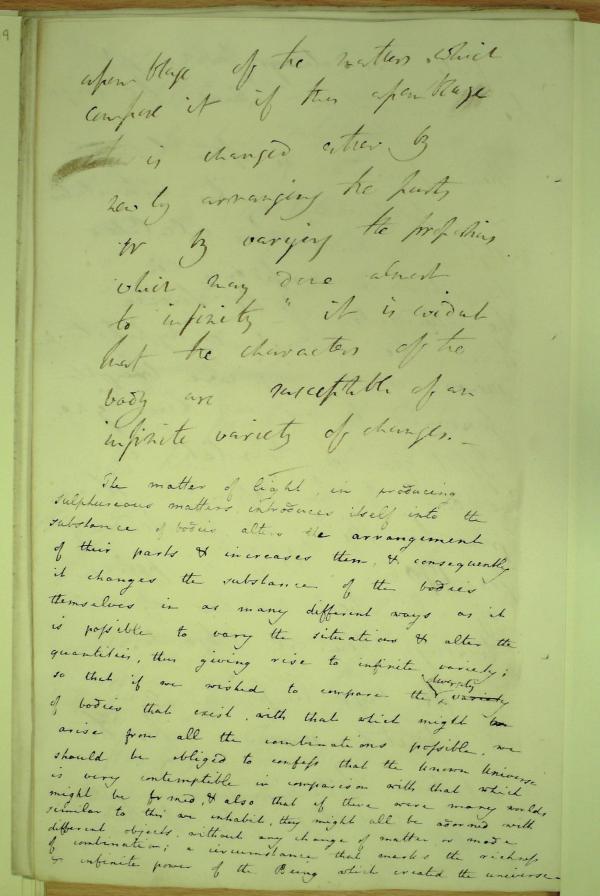 assemblage of the matters which
compose it if this assemblage
is changed either by
newly arranging the parts
or by varying the proportions
which may done almost
to infinity" it is evident
that the characters of the
body are susceptible of an
infinite variety of changes. —
The matter of light, in producing
sulphureous matters, introduces itself into the
substance of bodies alters the arrangement
of their parts & increases them, & consequently
it changes the substance of the bodies
themselves in as many different ways as it
is possible to vary the situations & alter the
quantities, thus giving rise to infinite variety;
so that if we wished to compare the diversity variety
of bodies that exist, with that which might
arise from all the combinations possible, we
should be obliged to confess that the known Universe
is very contemptible in comparison with that which
might be formed, & also that if there were many worlds
similar to this we inhabit, they might all be adorned with
different objects, without any change of matter or mode
of combination; a circumstance that marks the richness
& infinite power of the Being which created the universe—